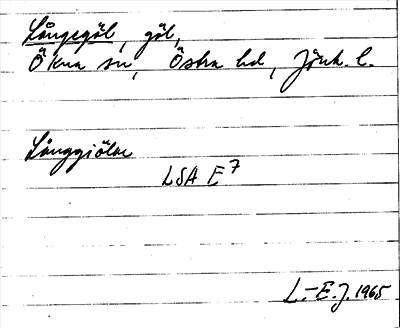 Långegöl, göl,
Ökna sn, Östra hd, Jönk. l.
Långgiölen
LSA E7
L.-E. J. 1965